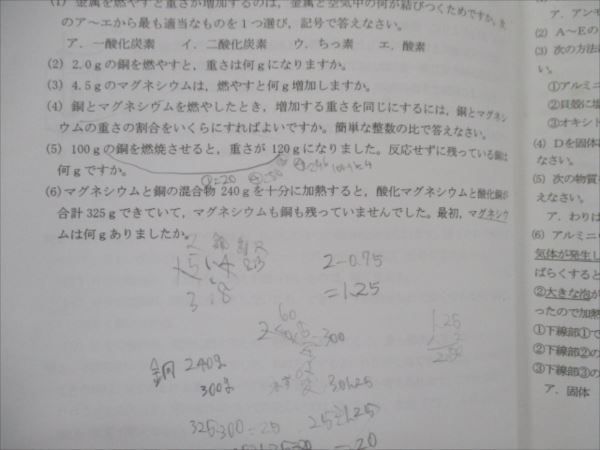 (1) 金属を燃やすと重さが増加するのは，金属と空気中の何が結びつくためですか。次
のア～エから最も適当なものを1つ選び，記号で答えなさい。
ア．一酸化炭素　イ．二酸化炭素　ウ．ちっ素　エ．酸素
(2) 2.0gの銅を燃やすと，重さは何gになりますか。
(3) 4.5gのマグネシウムは，燃やすと何g増加しますか。
(4) 銅とマグネシウムを燃やしたとき，増加する重さを同じにするには，銅とマグネシ
ウムの重さの割合をいくらにすればよいですか。簡単な整数の比で答えなさい。
(5) 100gの銅を燃焼させると，重さが120gになりました。反応せずに残っている銅は
何gですか。
①=20
(6) マグネシウムと銅の混合物240gを十分に加熱すると，酸化マグネシウムと酸化銅が
合計325gできていて，マグネシウムも銅も残っていませんでした。最初，マグネシウ
ムは何gありましたか。
2-0.75
=1.25
3:8
60
300
1.25
銅 240g
300g
325-300=25
25÷1.25
=20
ア．アンモ
(2) A～Eの
(3) 次の方法に
い。
①アルミニ
②貝殻に塩
③オキシド
(4) Dを固体に
(5) 次の物質を
えなさい。
ア．わりは
(6) アルミニウ
気体が発生し
ばらくすると
②大きな泡が
ったので加熱
①下線部①の
②下線部②の
③下線部③の
ア．固体